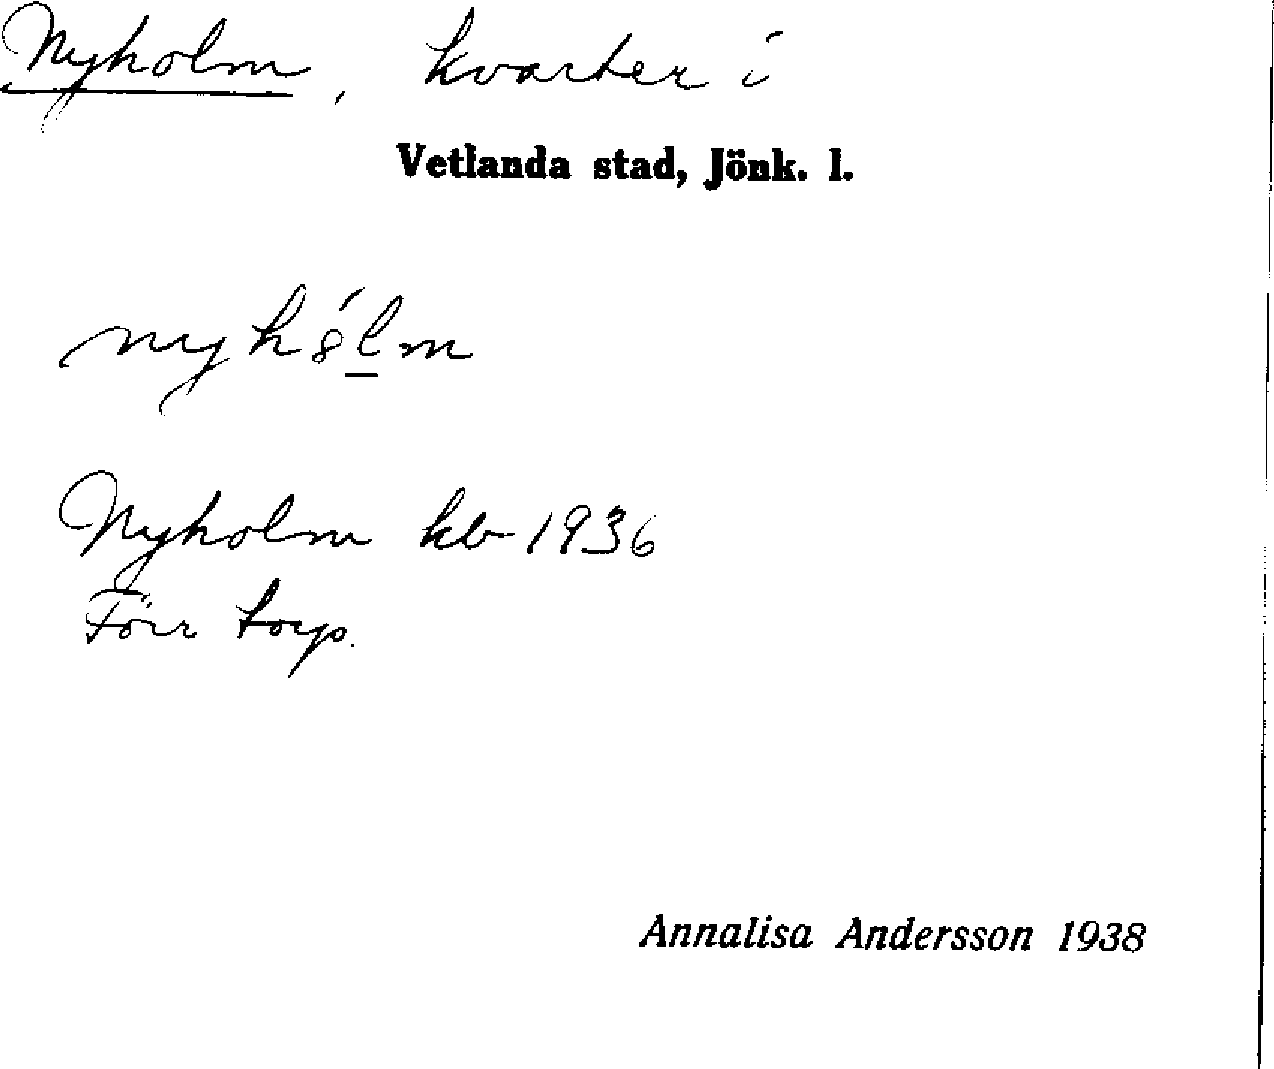 Nyholm, kvarter i
Vetlanda stad, Jönk. l.
nyhólm
Nyholm kb 1936
Förr torp.
Annalisa Andersson 1938